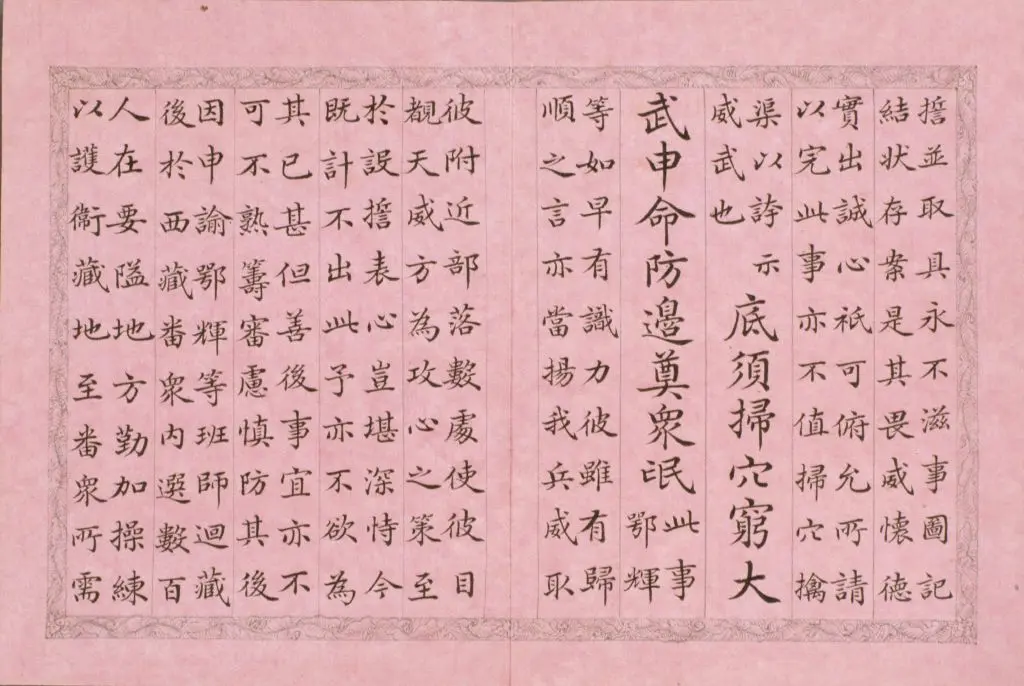 誓並取具永不滋事圖記
結狀存案是其畏威懷德
實出誠心祇可俯允所請
以完此事亦不值掃穴擒
渠以誇示
威武也
底須掃穴窮大
武申命防邊奠衆氓
此事
鄂輝
等如早有識力彼雖有歸
順之言亦當揚我兵威取
彼附近部落數處使彼目
覩天威方為攻心之策至
於設誓表心豈堪深恃今
既計不出此予亦不欲為
其已甚但善後事宜亦不
可不熟籌審慮慎防其後
因申諭鄂輝等班師迴藏
後於西藏番衆內選數百
人在要隘地方勤加操練
以護衛藏地至番衆所需